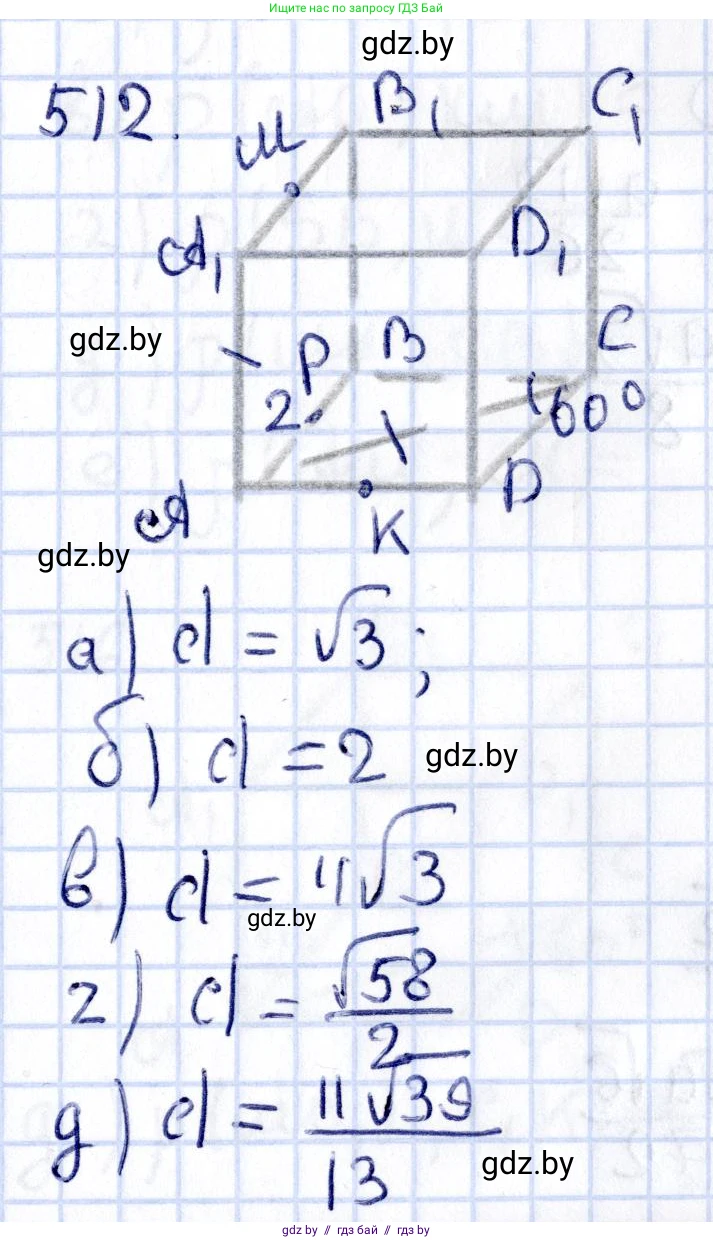 Ищите нас по запросу ГДЗ Бай
gdz.by
512.
B₁
C₁
M
A₁
D₁
gdz.by
P
B
C
2
60°
A
D
K
gdz.by
а) d = √3;
б) d = 2
gdz.by
в) d = 4√3
gdz.by
г) d = √58/2
д) d = 4√39/13
gdz.by
gdz.by // гдз бай // гдз by